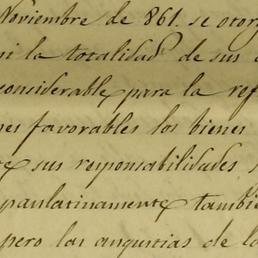 Noviembre de 861. se otorg
ni la totalidad de sus
considerable, para la ref
nes favorables los bienes
sus responsabilidades,
paulatinamente tambie
pero las angustias de la